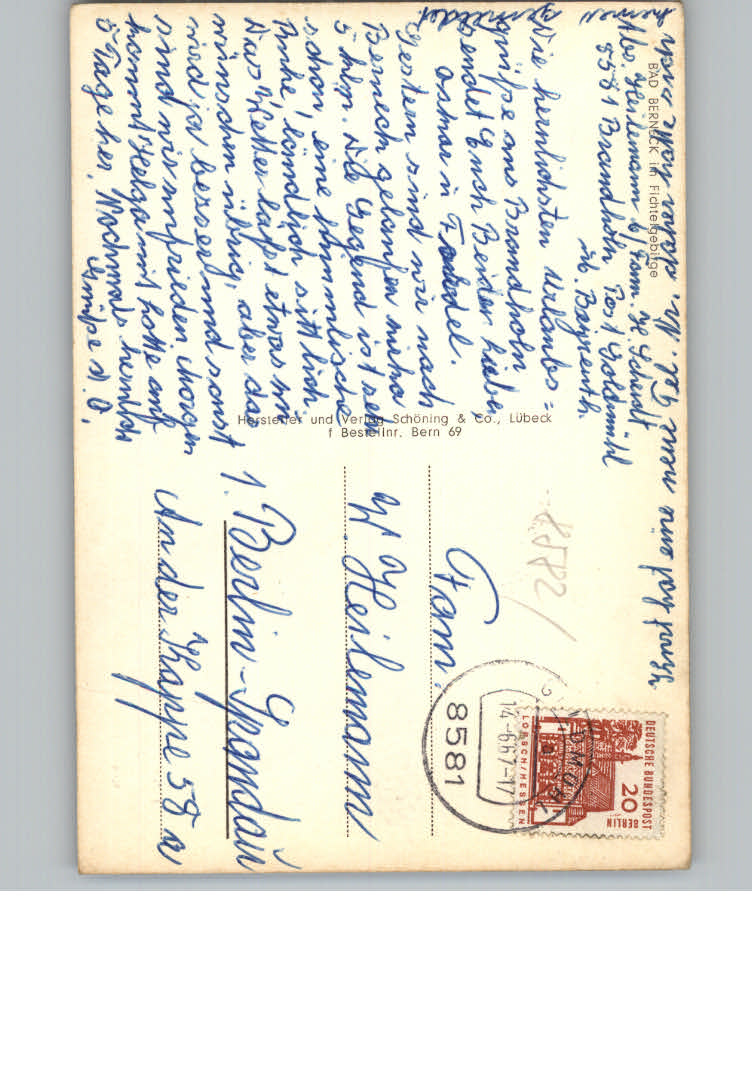 BAD BERNECK im Fichtelgebirge
Abs. Heilemann b/Fam. H. Scherdt
8581 Brandholz Post Goldmühl
üb. Bayreuth.
Die herzlichsten Urlaubs=
grüße aus Brandholz
sendet Euch Beiden lieber
Ottmar u.
gestern sind wir nach
Berneck gelaufen nicha
5 klm. Die Gegend ist sehr
schön, eine himmlische
Ruhe, ländlich sittlich.
Das Wetter läßt etwas zu
wünschen übrig, aber das
wird ja besser und sonst
sind wir zufrieden. Morgen
kommt Helga mit Lotte auf
5 Tage her. Nochmals herzlich
Grüße d. O.
gemeldet
Hersteller und Verlag Schöning & Co., Lübeck
f Bestellnr. Bern 69
DEUTSCHE BUNDESPOST
BERLIN
20
LORSCH/HESSEN
GOLDMÜHL
14.-6.67-17
8581
8582/
Fam.
W. Heilemann
1. Berlin-Spandau
An der Kappe 58 a